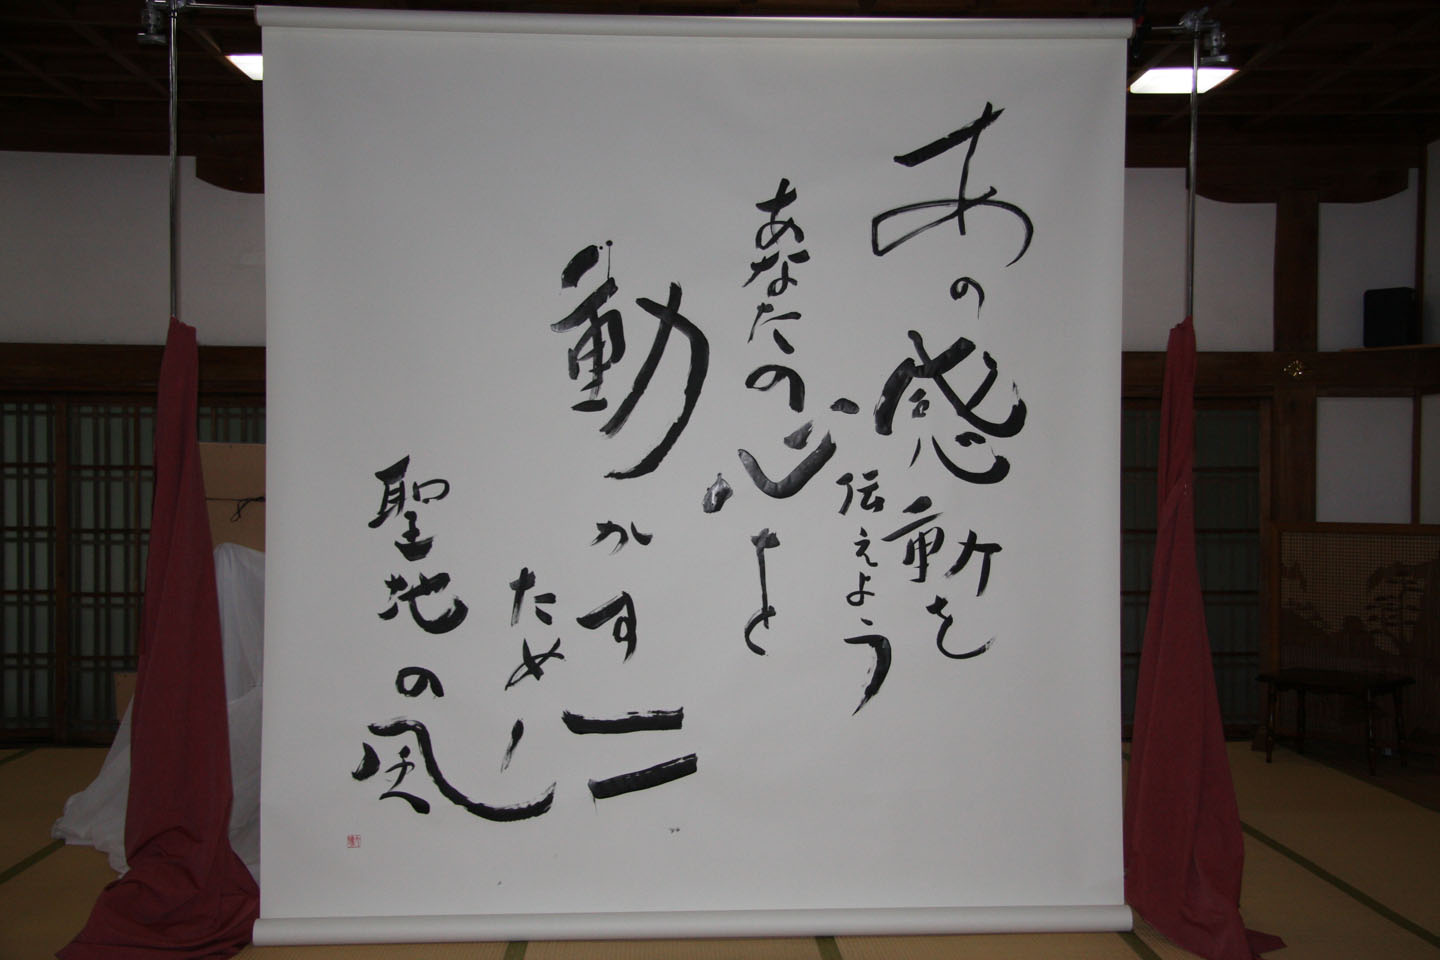 あの感動を
伝えよう
あなたの心と
動かす二
ため
聖地の風